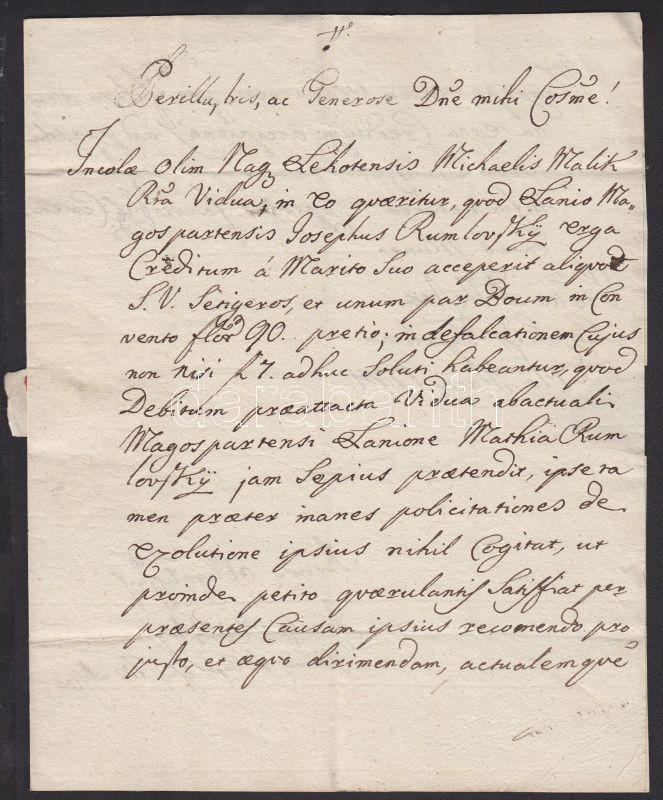 Perillustris, ac Generose Dne mihi Cosme!
Incolæ olim Nagy Lehotensis Michaelis Malik
Rta Vidua, in eo quæritur, quod Lanio Ma-
gospartensis Josephus Rumlovskÿ erga
Creditum á Marito Suo acceperit aliquot
S.V. Setigeros, et unum par Boum in Con
vento flor 90. pretio; in defalcationem Cujus
non nisi f 7. adhuc Soluti habeantur, quod
Debitum præattacta Vidua ab actuali
Magospartensi Lanione Mathia Rum
lovskÿ jam sepius prætendit, ipse ta
men præter inanes policitationes de
exolutione ipsius nihil Cogitat, ut
proinde petito quærulantis Satisfiat per
præsentes Causam ipsius recomendo pro
justo, et æquo dirimendam, actualemque
darabanth